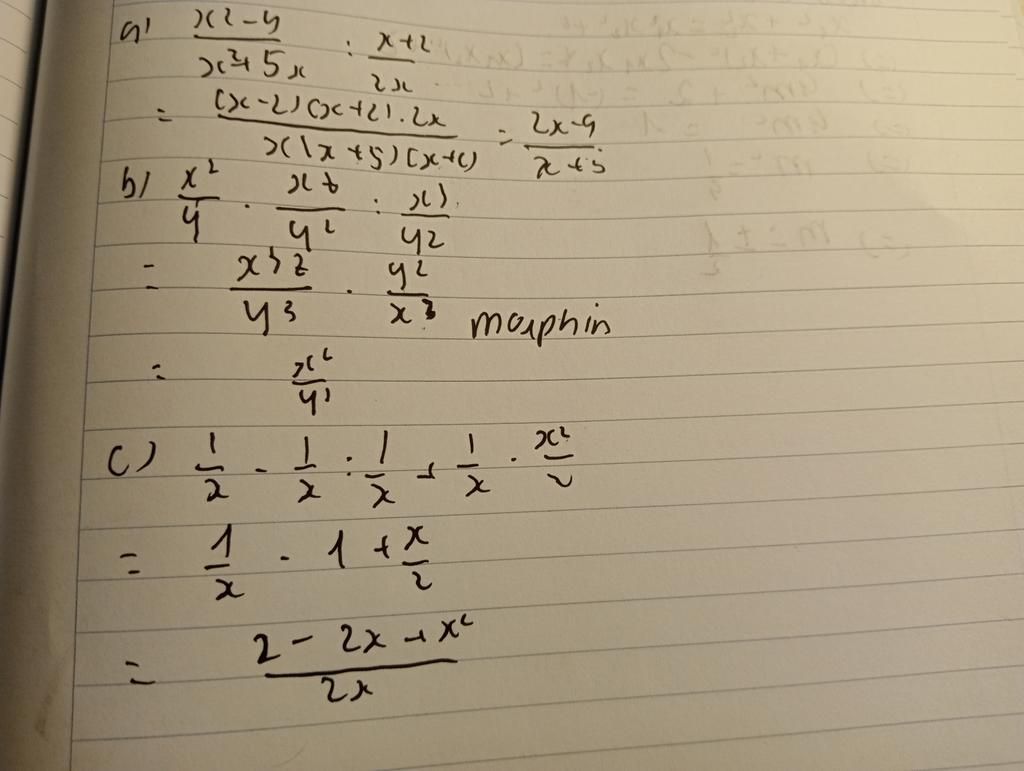 a) x² - 4 / x² + 5x : x + 2 / 2x
= (x - 2)(x + 2) . 2x / x(x + 5)(x + 2) = 2x - 4 / x + 5
b) x² / y . xz / y² : x³ / y²
= x³z / y³ . y² / x³ morphin
=
c) 1/x - 1/x : 1/x + 1/x . x²/2
= 1/x - 1 + x/2
= 2 - 2x + x² / 2x